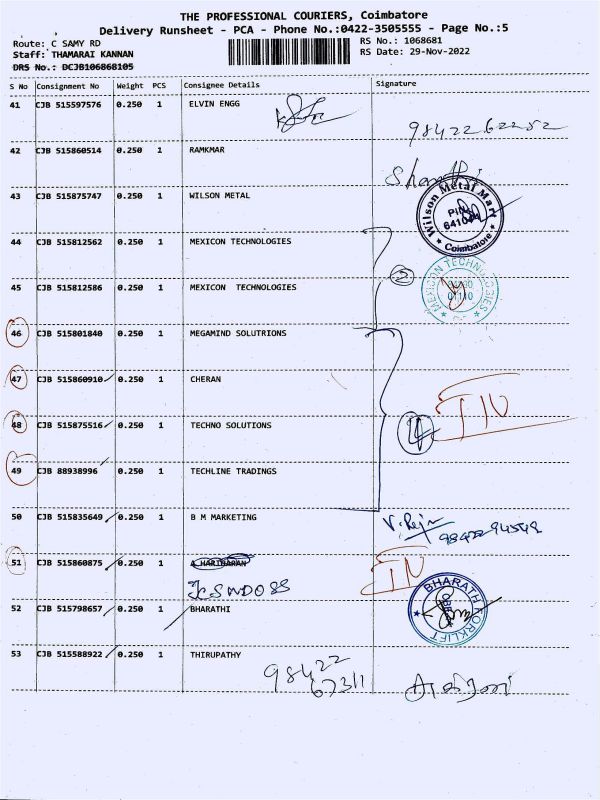 THE PROFESSIONAL COURIERS, Coimbatore
Delivery Runsheet - PCA - Phone No.:0422-3505555 - Page No.:5
Route: C SAMY RD
RS No.: 1068681
Staff: THAMARAI KANNAN
RS Date: 29-Nov-2022
DRS No.: DCJB106868105
S No Consignment No Weight PCS Consignee Details Signature
41 CJB 515597576 0.250 1 ELVIN ENGG
98422 62252
42 CJB 515860514 0.250 1 RAMKMAR
Shanthi
43 CJB 515875747 0.250 1 WILSON METAL
Wilson Metal Mart
PIN
Coimbatore
44 CJB 515812562 0.250 1 MEXICON TECHNOLOGIES
2
MEXICON TECHNOLOGIES
45 CJB 515812586 0.250 1 MEXICON TECHNOLOGIES
46 CJB 515801840 0.250 1 MEGAMIND SOLUTRIONS
47 CJB 515860910 0.250 1 CHERAN
IN
48 CJB 515875516 0.250 1 TECHNO SOLUTIONS
4
49 CJB 88938996 0.250 1 TECHLINE TRADINGS
50 CJB 515835649 0.250 1 B M MARKETING
51 CJB 515860875 0.250 1 A HARIHARAN
IN
BHARATH FORKLIFT
52 CJB 515798657 0.250 1 BHARATHI
53 CJB 515588922 0.250 1 THIRUPATHY
98422
67311